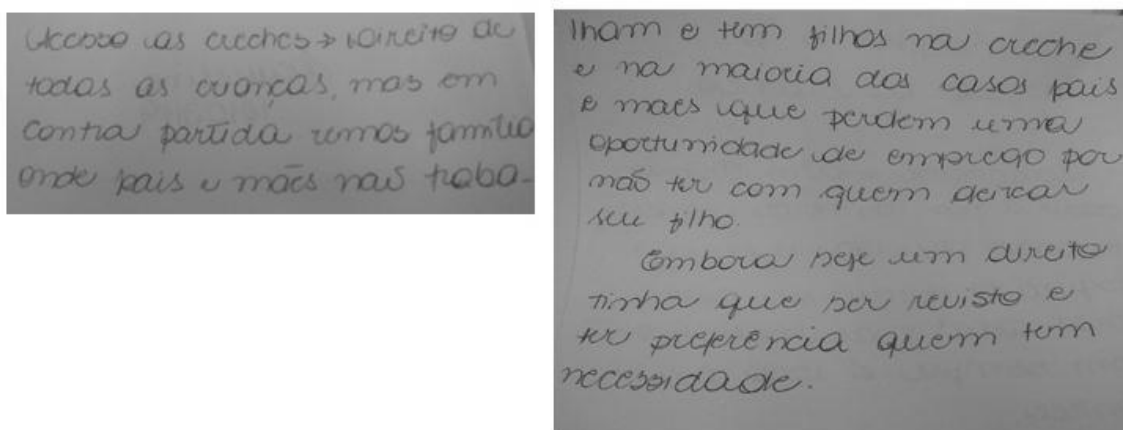 Acesso as creches → Direito de
todas as crianças, mas em
contra partida temos família
onde pais e mães não traba-
lham e tem filhos na creche
e na maioria dos casos pais
e maes que perdem uma
oportunidade de emprego por
não ter com quem deixar
seu filho.
Embora seje um direito
tinha que ser revisto e
ter preferência quem tem
necessidade.